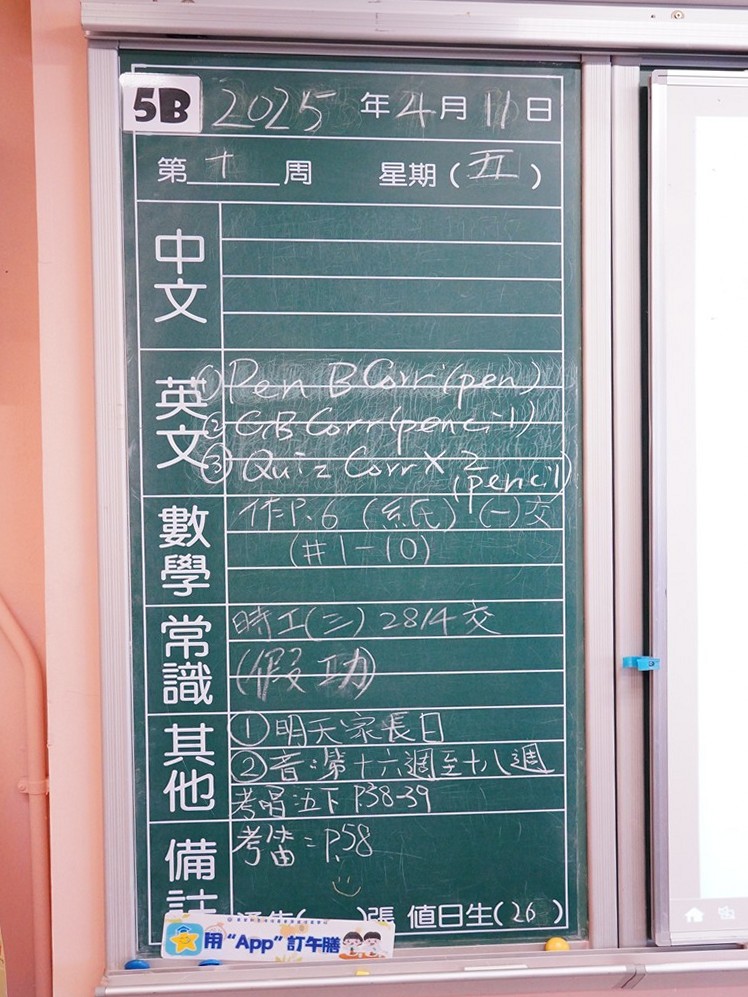 5B 2025年4月11日
第十周 星期(五)
中文
英文
① Pen B Corr (pen)
② GB Corr (pencil)
③ Quiz Corr X 2
(pencil)
數學
作P.6 (系氏) (一)交
(#1-10)
常識
時工(三) 28/4交
(假功)
其他
①明天家長日
②音:第十六週至十八週
考唱:五下 P.38-39
備註
考笛:P.58
張 值日生(26)
用“App”訂午膳